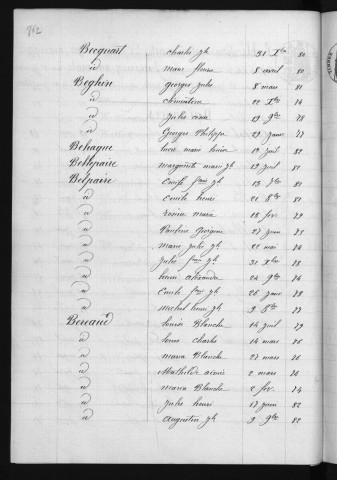 212
Becquait charles jh 31 Xbre 80
id marie 8 avril 80
Beghin georges jules 8 mars 81
id clémentine 22 Xbre 74
id jules 19 9bre 78
id Georges Philippe 29 janv 77
Behague marie louise 19 juil 82
Bellepaire marguerite marie jh 19 juil 81
Belpaire fçois jh 13 7bre 81
id emile henri 21 8bre 81
id maria 18 fev 79
id Pauline Georgine 27 juin 71
id marie julie jh 22 mai 74
id jules fçois jh 31 Xbre 78
id henri alexandre 24 9bre 76
id emile jh 26 janv 78
id michel henri jh 9 8bre 77
Benaud louise Blanche 14 juil 79
id louis charles 14 mars 76
id maria Blanche 27 mars 76
id Mathilde aimée 2 mars 76
id maria Blanche 2 fev 74
id jules henri 17 juin 82
id augustin jh 9 9bre 82